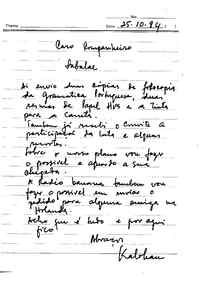 25.10.94
Caro Companheiro
Sabalae
Ai envio duas cópias de fotocopia
da Gramatica Portuguesa, duas
resmas de Papel HVS e a Tinta
para a caneta.
Tambem já recebi o convite a
participação da luta e alguns
recortes.
Sobre o nosso plano vou fazer
o possivel e aguardo a sua
chegada.
A Radio tambem vou
fazer o possivel em enviar o
pedido para alguma amiga na
Holanda.
Acho que é tudo e por aqui
fico
Abraços